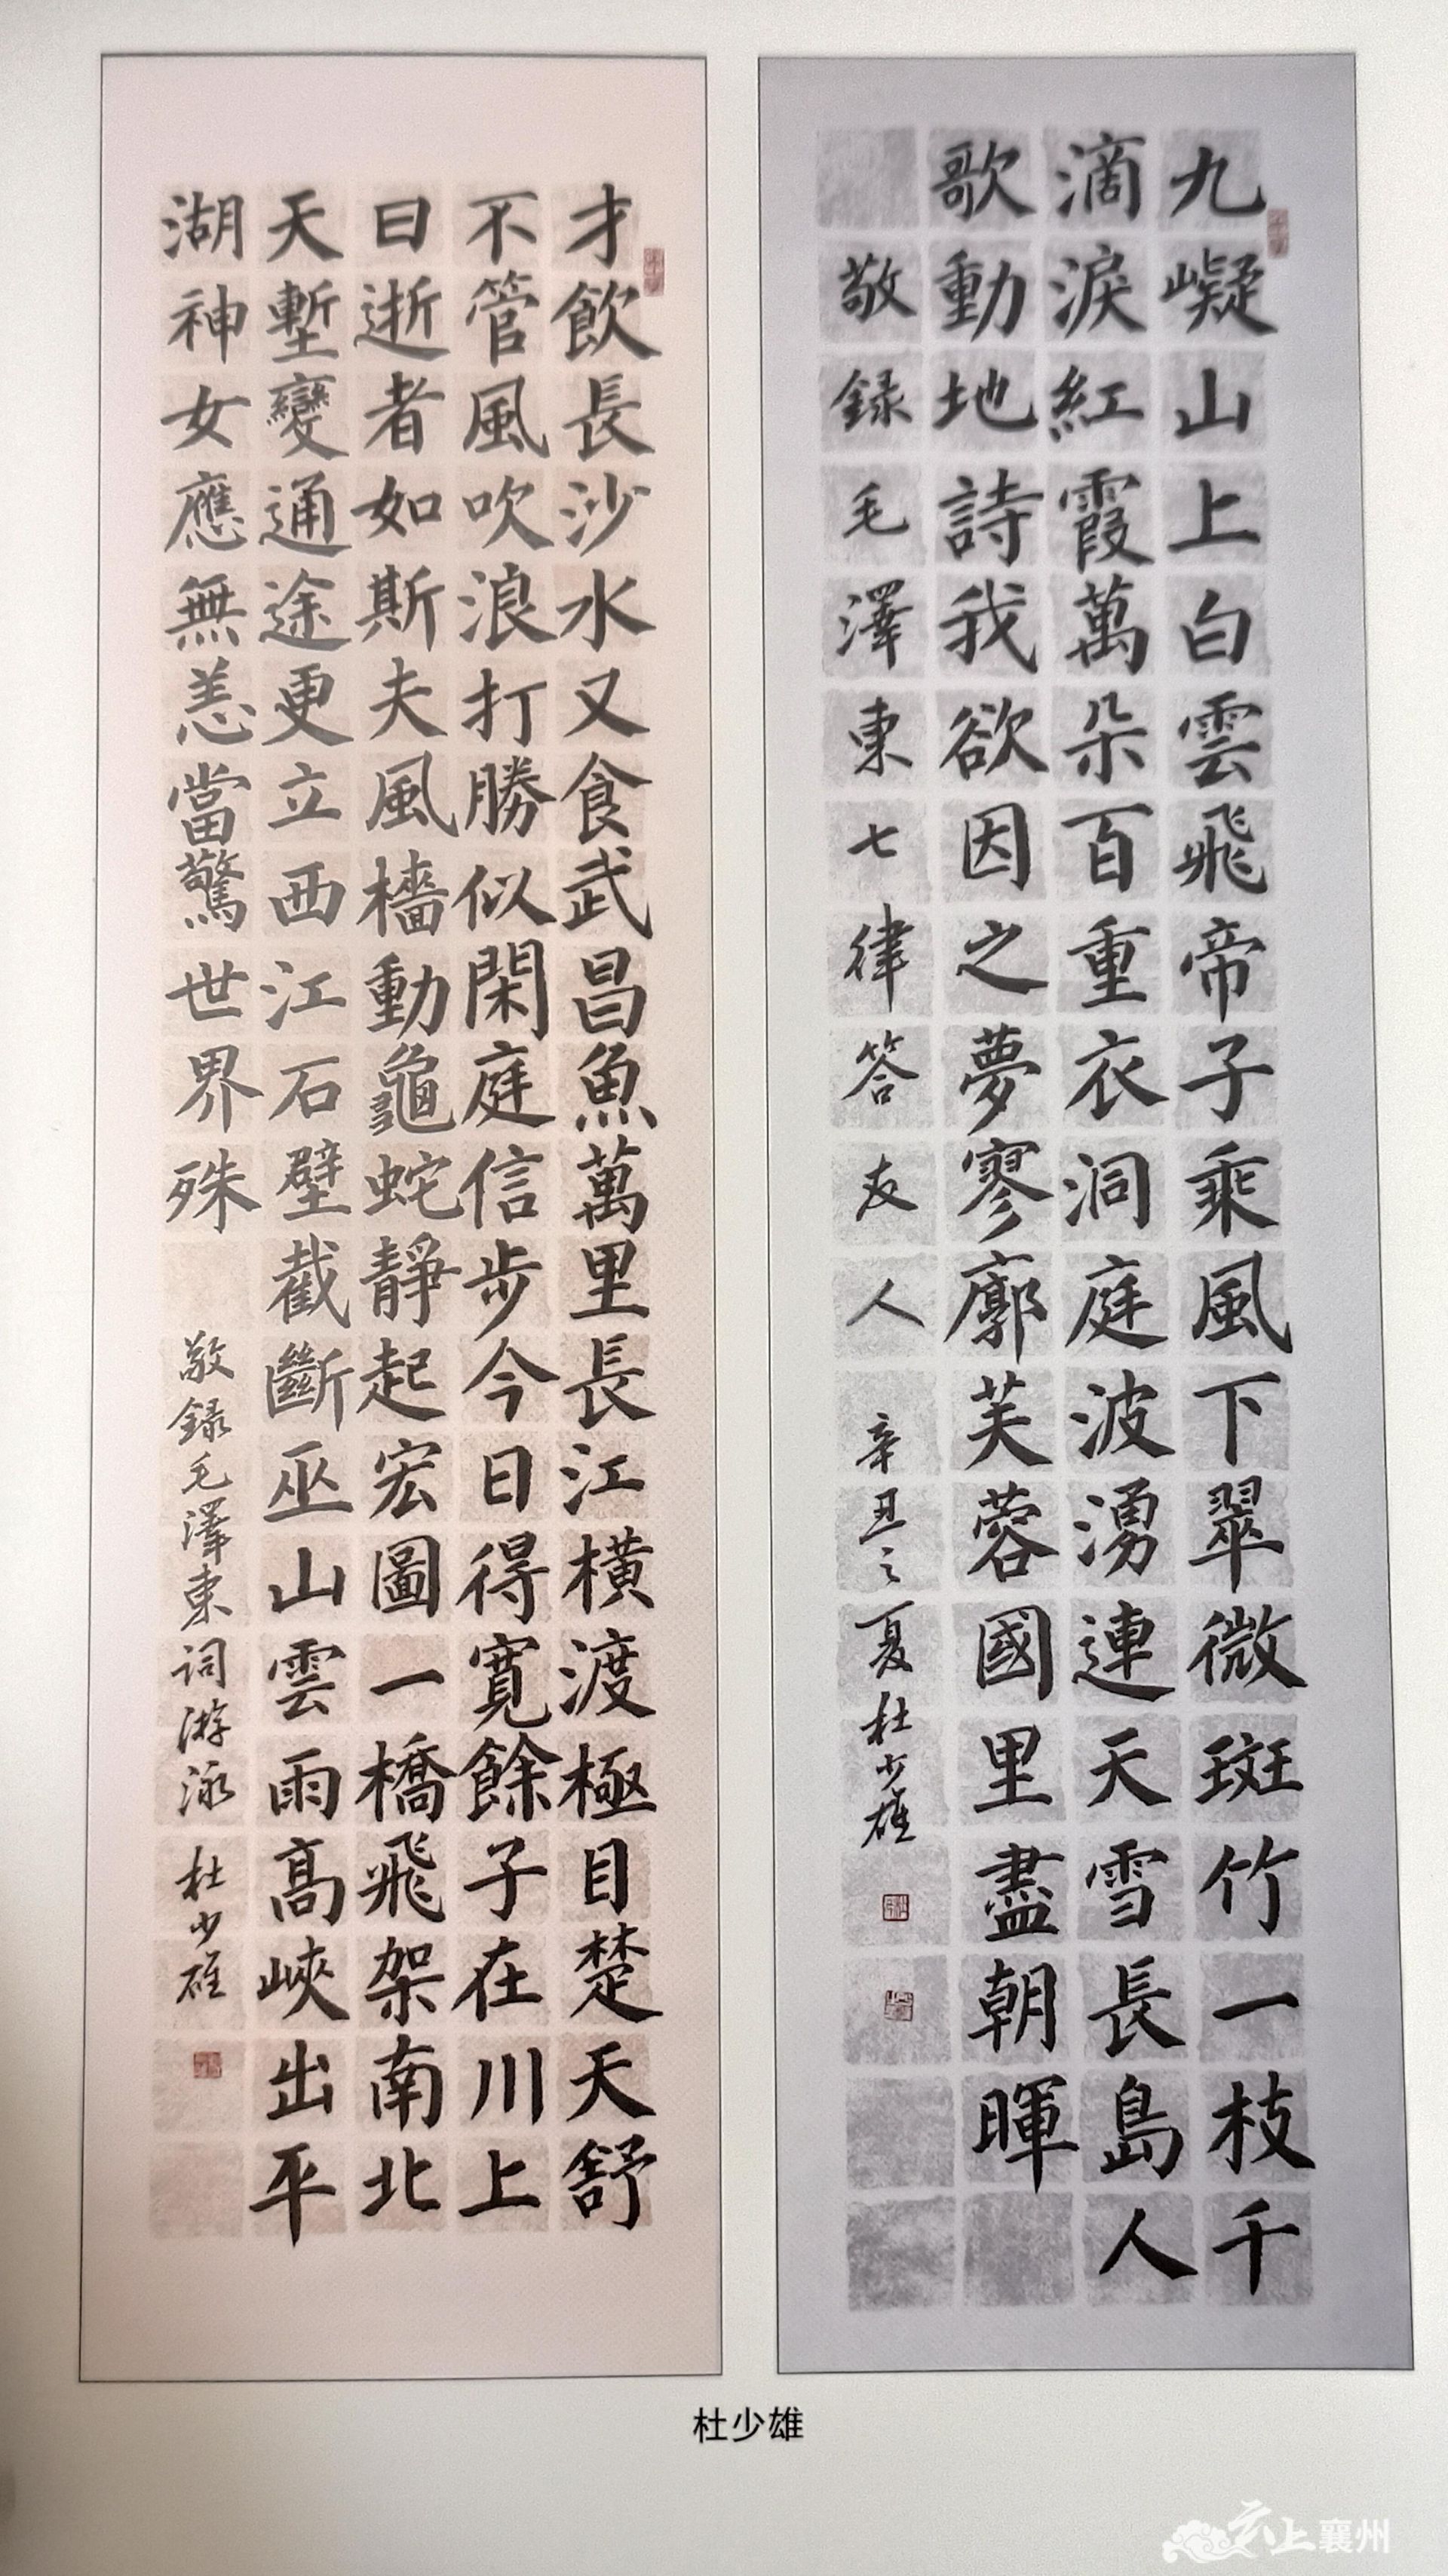 九嶷山上白雲飛帝子乘風下翠微斑竹一枝千
滴淚紅霞萬朵百重衣洞庭波湧連天雪長島人
歌動地詩我欲因之夢寥廓芙蓉國里盡朝暉
敬録毛澤東七律答友人 辛丑之夏杜少雄
才飲長沙水又食武昌魚萬里長江橫渡極目楚天舒
不管風吹浪打勝似閑庭信步今日得寬餘子在川上
曰逝者如斯夫風檣動龜蛇靜起宏圖一橋飛架南北
天塹變通途更立西江石壁截斷巫山雲雨高峽出平
湖神女應無恙當驚世界殊
敬録毛澤東词游泳 杜少雄
杜少雄
云上襄州